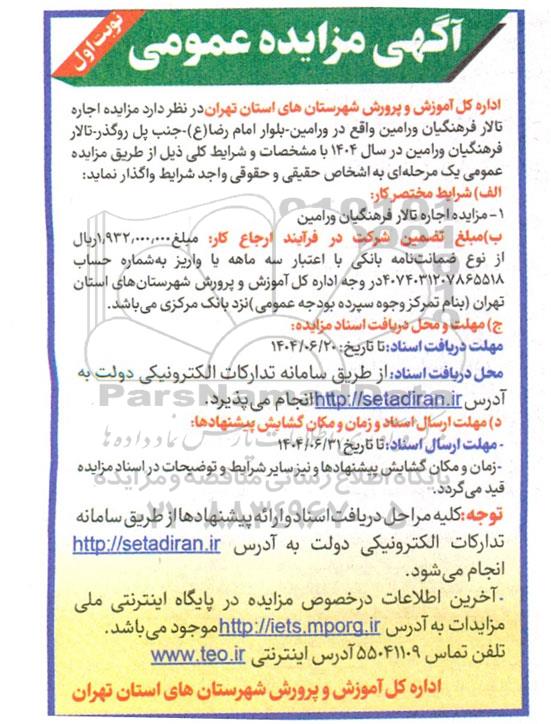 آگهی مزایده عمومی
نوبت اول
اداره کل آموزش و پرورش شهرستان های استان تهران در نظر دارد مزایده اجاره
تالار فرهنگیان ورامین واقع در ورامین-بلوار امام رضا(ع)-جنب پل روگذر-تالار
فرهنگیان ورامین در سال ۱۴۰۴ با مشخصات و شرایط کلی ذیل از طریق مزایده
عمومی یک مرحله‌ای به اشخاص حقیقی و حقوقی واجد شرایط واگذار نماید:
الف) شرایط مختصر کار:
۱- مزایده اجاره تالار فرهنگیان ورامین
ب)مبلغ تضمین شرکت در فرآیند ارجاع کار: مبلغ ۱,۹۳۲,۰۰۰,۰۰۰ریال
از نوع ضمانت‌نامه بانکی با اعتبار سه ماهه یا واریز به‌شماره حساب
۴۰۷۴۰۳۱۲۰۷۸۶۵۵۱۸در وجه اداره کل آموزش و پرورش شهرستان‌های استان
تهران (بنام تمرکز وجوه سپرده بودجه عمومی)نزد بانک مرکزی می‌باشد.
ج) مهلت و محل دریافت اسناد مزایده:
مهلت دریافت اسناد: تا تاریخ: ۱۴۰۴/۰۶/۲۰
محل دریافت اسناد: از طریق سامانه تدارکات الکترونیکی دولت به
آدرس http://setadiran.ir انجام می پذیرد.
د) مهلت ارسال اسناد و زمان و مکان گشایش پیشنهادها:
- مهلت ارسال اسناد: تا تاریخ ۱۴۰۴/۰۶/۳۱
-زمان و مکان گشایش پیشنهادها و نیز سایر شرایط و توضیحات در اسناد مزایده
قید می‌گردد.
توجه: کلیه مراحل دریافت اسناد و ارائه پیشنهادها از طریق سامانه
تدارکات الکترونیکی دولت به آدرس http://setadiran.ir
انجام می‌شود.
-آخرین اطلاعات درخصوص مزایده در پایگاه اینترنتی ملی
مزایدات به آدرس http://iets.mporg.ir موجود می‌باشد.
تلفن تماس ۵۵۰۴۱۱۰۹ آدرس اینترنتی www.teo.ir
اداره کل آموزش و پرورش شهرستان های استان تهران
ParsNamadData
پایگاه اطلاع رسانی مناقصه و مزایده